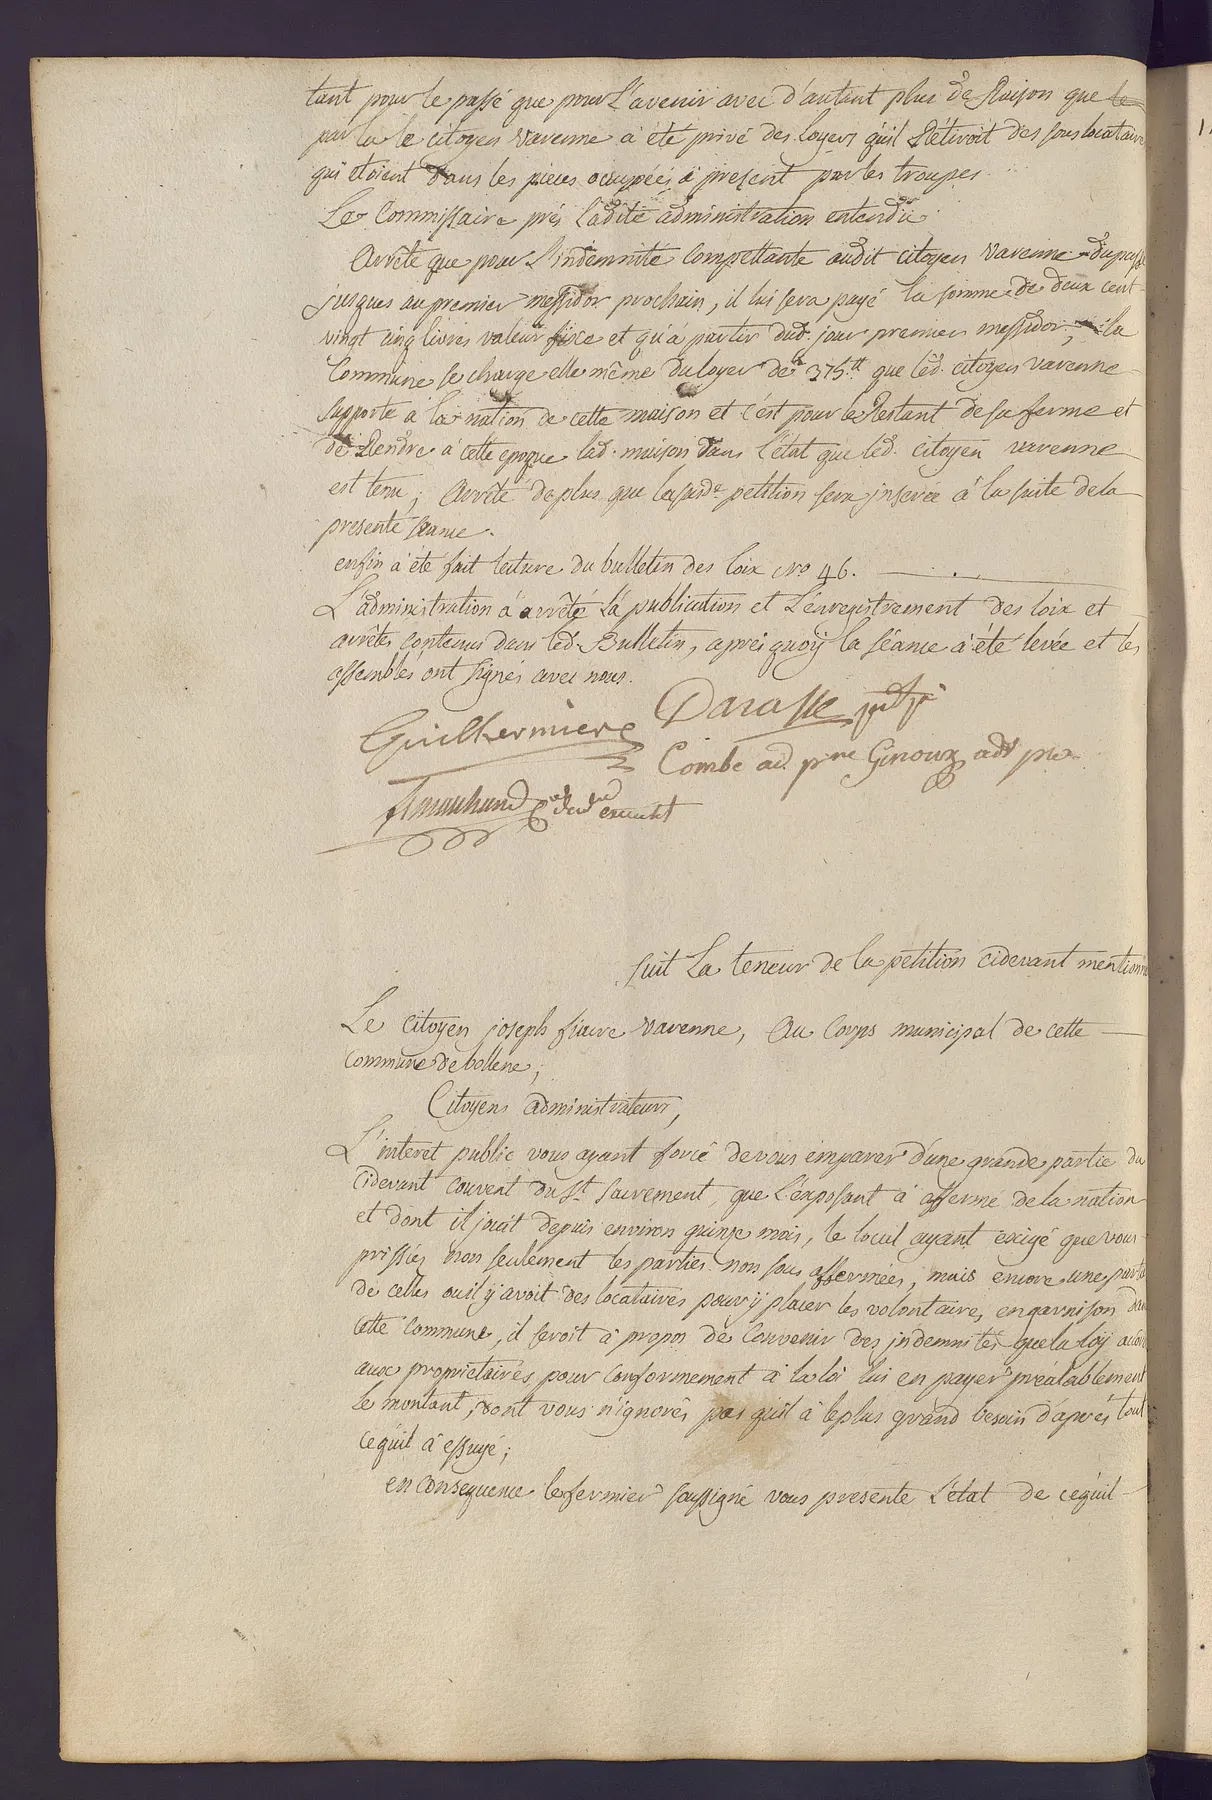 tant pour le passé que pour l'avenir avec d'autant plus de Raison que le
par la le citoyen Varenne à été privé des loyers qu'il Rétiroit des sous locataires
qui etoient dans les pieces occupées à present par les troupes.
Le Commissaire près ladite administration entendu
Arrête que pour l'indemnité Compettante audit citoyen Varenne du passé
jusques au premier messidor prochain, il lui sera payé la somme de deux cent
vingt cinq livres valeur fixe et qu'à partir dud. jour premier messidor, la
Commune se charge elle même du loyer de 375.tt que led. citoyen varenne
supporte à la nation de cette maison et c'est pour le Restant de sa ferme et
de Rendre à cette epoque lad. maison dans l'état que led. citoyen varenne
est tenu; Arrête de plus que la susde. petition sera inserée à la suite de la
presente seance.
enfin à été fait lecture du bulletin des loix No 46.
L'administration à arrêté la publication et l'enregistrement des loix et
arrêtés contenus dans led. Bulletin, après quoy la séance à été levée et les
assemblés ont signés avec nous.
Guilhermiere Darasse
Combe ad. Ginoux adt
suit La teneur de la petition cidevant mentionnée
Le citoyen joseph Varenne, Au Corps municipal de cette
commune de bollene;
Citoyens administrateurs,
L'interet public vous ayant forcé de vous emparer d'une grande partie du
cidevant couvent du St. Sacrement, que l'exposant à affermé de la nation
et dont il jouit depuis environ quinze mois, le local ayant exigé que vous
prissiés non seulement les parties non sous affermées, mais encore une partie
de celles ou il y avoit des locataires pour y placer les volontaires, en garnison dans
cette commune, il seroit à propos de convenir des indemnités que la loy accorde
aux proprietaires pour conformement à la loi lui en payer préalablement
le montant, dont vous n'ignorés pas qu'il à le plus grand besoin d'après tout
cequil à essuyé;
en consequence le fermier soussigné vous presente l'état de cequil